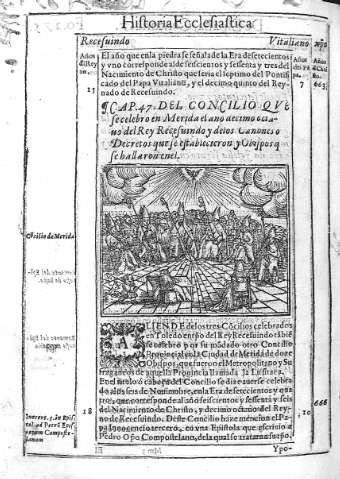 Historia Ecclesiastica
Recesuindo
Vitaliano
El año que en la piedra se señala de la Era de setecientos
y vno corresponde al de seiscientos y sesenta y tres del
Nacimiento de Christo que seria el septimo del Pontifi
cado del Papa Vitaliano, y el decimo quinto del Rey-
nado de Recesuindo.
7
663
15
¶CAP. 47. DEL CONCILIO QVE
se celebro en Merida el año decimo octa-
uo del Rey Recesuindo y de los Canones o
Decretos que se establecieron y Obispos q̃
se hallaron en el.
Cõcilio de Merida
ALIENDE de los tres Cõcilios celebrados
en Toledo en tpo del Rey Recesuindo tãbiẽ
se celebro por su mãdado otro Concilio
Prouincial en la Ciudad de Merida de doze
Obispos, que fueron el Metropolitano y Su
fraganeos de aquella Prouincia llamada la Lusitana.
En el titulo o cabeça del Concilio se dize auerse celebra-
do a los seis de Nouiembre, en la Era de setecientos y qua
tro, que corresponde al año de seiscientos y sesenta y seis
del Nacimiento de Christo, y decimo octauo del Rey-
no de Recesuindo. Deste Concilio haze mencion el Pa-
pa Innocencio tercero, en vna Epistola que escriuio a
Pedro Obpo Compostelano, de la qual se tratara
18
666
Ypo-